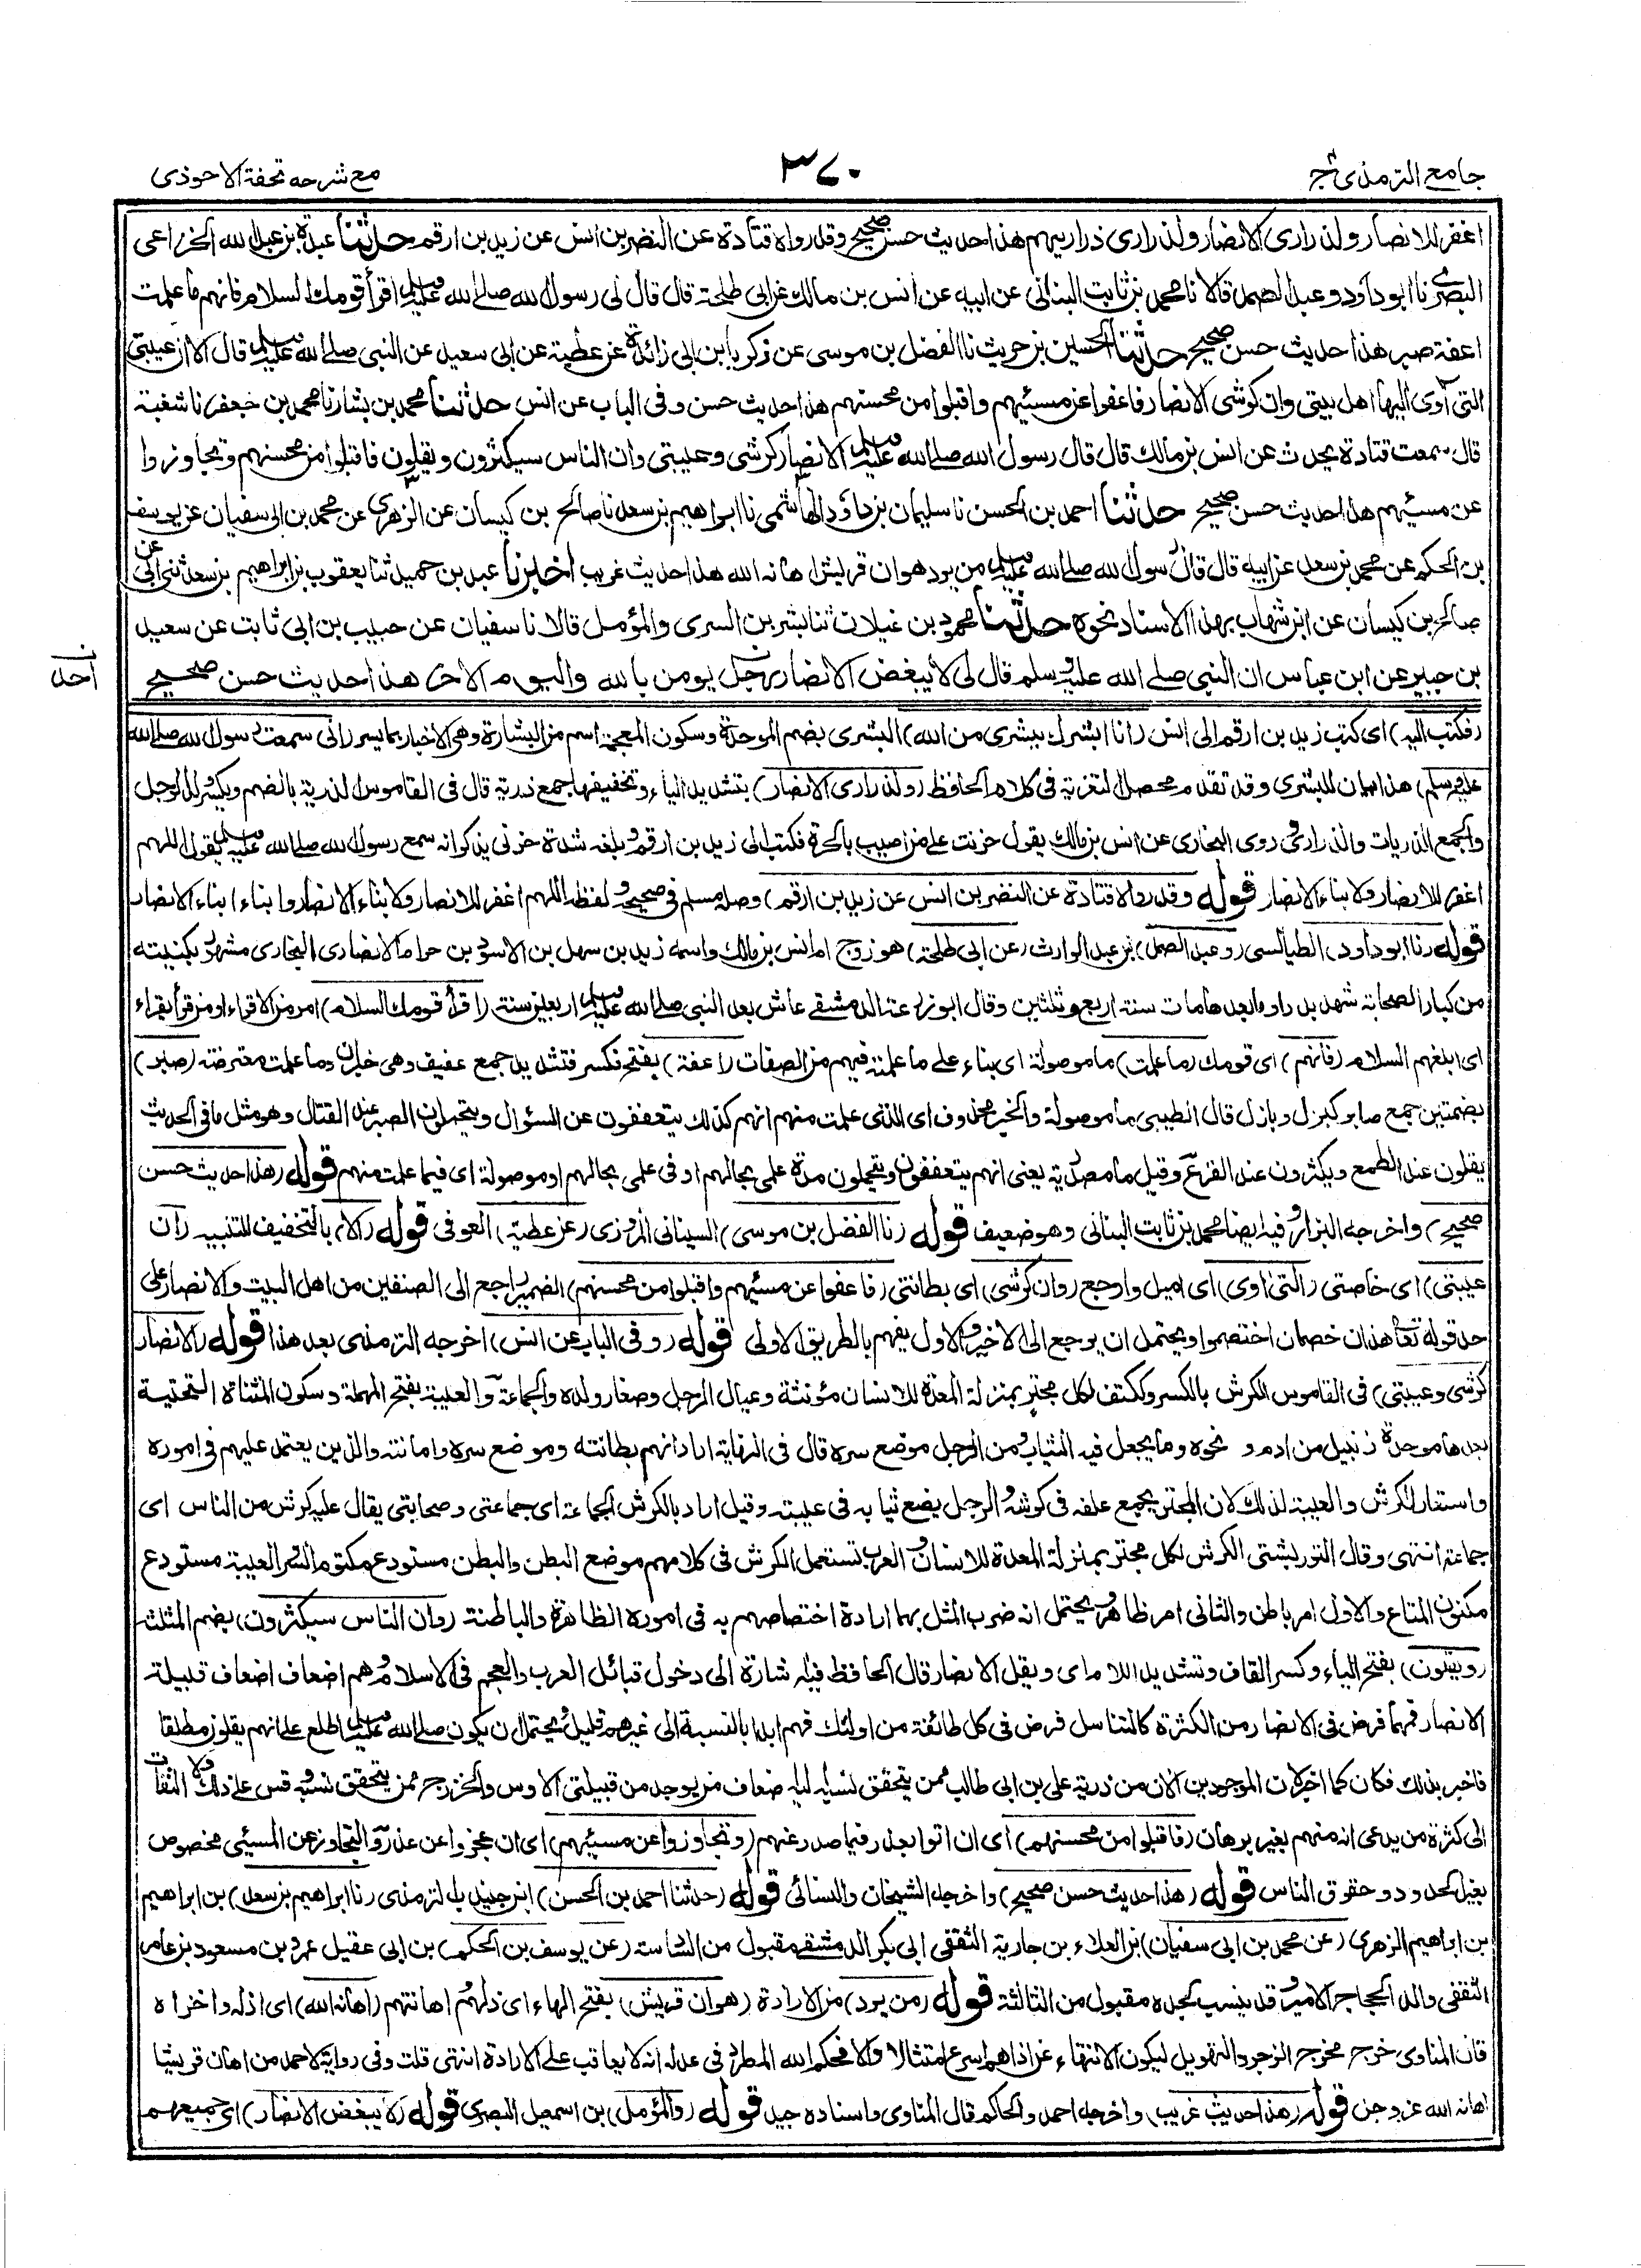 جامع الترمذي ج٤
٣٧٠
مع شرحه تحفة الاحوذى
اغفر للانصار ولذرارى الانصار ولذرارى ذراريهم هذا حديث حسن صحيح وقد رواه قتادة عن النضر بن انس عن زيد بن ارقم حدثنا عبدة بن عبد الله الخزاعى
البصرى نا ابو داود وعبد الصمد قالا نا محمد بن ثابت البنانى عن ابيه عن انس بن مالك عن ابى طلحة قال قال لى رسول الله صلى الله عليه وسلم اقرأ قومك السلام فانهم ما علمت
اعفة صبر هذا حديث حسن صحيح حدثنا الحسين بن حريث نا الفضل بن موسى عن زكريا بن ابى زائدة عن عطية عن ابى سعيد عن النبى صلى الله عليه وسلم قال الا ان عيبتى
التى آوى اليها اهل بيتى وان كرشى الانصار فاعفوا عن مسيئهم واقبلوا من محسنهم هذا حديث حسن وفى الباب عن انس حدثنا محمد بن بشار نا محمد بن جعفر نا شعبة
قال سمعت قتادة يحدث عن انس بن مالك قال قال رسول الله صلى الله عليه وسلم الانصار كرشى وعيبتى وان الناس سيكثرون ويقلون فاقبلوا من محسنهم وتجاوزوا
عن مسيئهم هذا حديث حسن صحيح حدثنا احمد بن الحسن نا سليمان بن داود الهاشمى نا ابراهيم بن سعد نا صالح بن كيسان عن الزهرى عن محمد بن ابى سفيان عن يوسف
بن الحكم عن محمد بن سعد عن ابيه قال قال رسول الله صلى الله عليه وسلم من يرد هوان قريش اهانه الله هذا حديث غريب اخبرنا عبد بن حميد ثنا يعقوب بن ابراهيم بن سعد ثنى ابى عن
صالح بن كيسان عن ابن شهاب بهذا الاسناد نحوه حدثنا محمود بن غيلان ثنا بشر بن السرى والمؤمل قالا نا سفيان عن حبيب بن ابى ثابت عن سعيد
بن جبير عن ابن عباس ان النبى صلى الله عليه وسلم قال لى لا يبغض الانصار رجل يومن بالله واليوم الآخر هذا حديث حسن صحيح
ن
احد
(فكتب اليه) اى كتب زيد بن ارقم الى انس (انا ابشرك ببشرى من الله) البشرى بضم الموحدة وسكون المعجمة اسم من البشارة وهى الاخبار بما يسر (انى سمعت رسول الله صلى الله
عليه وسلم) هذا بيان للبشرى وقد تقدم محصل التعزية فى كلام الحافظ (ولذرارى الانصار) بتشديد الياء وتخفيفها جمع ذرية قال فى القاموس الذرية بالضم ويكسر ولد الرجل
والجمع الذريات والذرارى وروى البخارى عن انس بن مالك يقول حزنت على من اصيب بالحرة فكتب الى زيد بن ارقم وبلغه شدة حزنى يذكر انه سمع رسول الله صلى الله عليه وسلم يقول اللهم
اغفر للانصار ولابناء الانصار قوله (وقد رواه قتادة عن النضر بن انس عن زيد بن ارقم) وصله مسلم فى صحيحه ولفظه اللهم اغفر للانصار ولابناء الانصار وابناء ابناء الانصار
قوله (نا ابو داود) الطيالسى (وعبد الصمد) بن عبد الوارث (عن ابى طلحة) هو زوج ام انس بن مالك واسمه زيد بن سهل بن الاسود بن حرام الانصارى النجارى مشهور بكنيته
من كبار الصحابة شهد بدرا وما بعدها مات سنة اربع وثلثين وقال ابو زرعة الدمشقى عاش بعد النبى صلى الله عليه وسلم اربعين سنة (اقرأ قومك السلام) امر من الاقراء او من قرأ يقراء
اى ابلغهم السلام (فانهم) اى قومك (ما علمت) ما موصولة اى بناء على ما علمته فيهم من الصفات (اعفة) بفتح فكسر فتشديد جمع عفيف وهى خبر ان وما علمت معترضة (صبر)
بضمتين جمع صابر كبزل وبازل قال الطيبى ما موصولة والخبر محذوف اى الذى علمت منهم انهم كذلك يتعففون عن السؤال ويتحملون الصبر عند القتال وهو مثل ما فى الحديث
يقلون عند الطمع ويكثرون عند الفزع وقيل ما مصدرية يعنى انهم يتعففون ويتحملون مدة علمى بحالهم او فى علمى بحالهم او موصولة اى فيما علمت منهم قوله (هذا حديث حسن
صحيح) واخرجه البزار وفيه ايضا محمد بن ثابت البنانى وهو ضعيف قوله (نا الفضل بن موسى) السينانى المروزى (عن عطية) العوفى قوله (الا) بالتخفيف للتنبيه (ان
عيبتى) اى خاصتى (التى اوى) اى اميل وارجع (وان كرشى) اى بطانتى (فاعفوا عن مسيئهم واقبلوا من محسنهم) الضمير راجع الى الصنفين من اهل البيت والانصار على
حد قوله تعالى هذان خصمان اختصموا ويحتمل ان يرجع الى الاخير والاول يفهم بالطريق الاولى قوله (وفى الباب عن انس) اخرجه الترمذى بعد هذا قوله (الانصار
كرشى وعيبتى) فى القاموس الكرش بالكسر وككتف لكل مجتر بمنزلة المعدة للانسان مؤنثة وعيال الرجل وصغار ولده والجماعة والعيبة بفتح المهملة وسكون المثناة التحتية
بعدها موحدة زنبيل من ادم ونحوه وما يجعل فيه الثياب ومن الرجل موضع سره قال فى النهاية اراد انهم بطانته وموضع سره وامانته والذين يعتمد عليهم فى اموره
واستعار الكرش والعيبة لذلك لان المجتر يجمع علفه فى كرشه والرجل يضع ثيابه فى عيبته وقيل اراد بالكرش الجماعة اى جماعتى وصحابتى يقال عليه كرش من الناس اى
جماعة انتهى وقال التوربشتى الكرش لكل مجتر بمنزلة المعدة للانسان والعرب تستعمل الكرش فى كلامهم موضع البطن والبطن مستودع مكتوم السر والعيبة مستودع
مكنون المتاع والاول امر باطن والثانى امر ظاهر ويحتمل انه ضرب المثل بهما ارادة اختصاصهم به فى اموره الظاهرة والباطنة (وان الناس سيكثرون) بضم المثلثة
(ويقلون) بفتح الياء وكسر القاف وتشديد اللام اى ويقل الانصار قال الحافظ فيه اشارة الى دخول قبائل العرب والعجم فى الاسلام وهم اضعاف اضعاف قبيلة
الانصار فمهما فرض فى الانصار من الكثرة كالتناسل فرض فى كل طائفة من اولئك فهم ابدا بالنسبة الى غيرهم قليل ويحتمل ان يكون صلى الله عليه وسلم اطلع على انهم يقلون مطلقا
فاخبر بذلك فكان كما اخبر لان الموجودين الآن من ذرية على بن ابى طالب ممن يتحقق نسبه اليه اضعاف من يوجد من قبيلتى الاوس والخزرج ممن يتحقق نسبه وقس على ذلك ولا التفات
الى كثرة من يدعى انه منهم بغير برهان (فاقبلوا من محسنهم) اى ان اتوا بعذر فيما صدر عنهم (وتجاوزوا عن مسيئهم) اى ان عجزوا عن عذر والتجاوز عن المسيئى مخصوص
بغير الحدود وحقوق الناس قوله (هذا حديث حسن صحيح) واخرجه الشيخان والنسائى قوله (حدثنا احمد بن الحسن) ابن جنيدب الترمذى (نا ابراهيم بن سعد) بن ابراهيم
بن ابراهيم الزهرى (عن محمد بن ابى سفيان) بن العلاء بن جارية الثقفى ابى بكر الدمشقى مقبول من السادسة (عن يوسف بن الحكم) بن ابى عقيل عمرو بن مسعود بن عامر
الثقفى والد الحجاج الامير وقد ينسب لجده مقبول من الثالثة قوله (من يرد) من الارادة (هوان قريش) بفتح الهاء اى ذلهم واهانتهم (اهانه الله) اى اذله واخزاه
قال المناوى خرج مخرج الزجر والتهويل ليكون الانتهاء عن اذاهم اسرع امتثالا والا فحكم الله المطرد فى عدله انه لا يعاقب على الارادة انتهى قلت وفى رواية لاحمد من اهان قريشا
اهانه الله عز وجل قوله (هذا حديث غريب) واخرجه احمد والحاكم قال المناوى واسناده جيد قوله (والمؤمل) بن اسمعيل البصرى قوله (لا يبغض الانصار) اى جميعهم